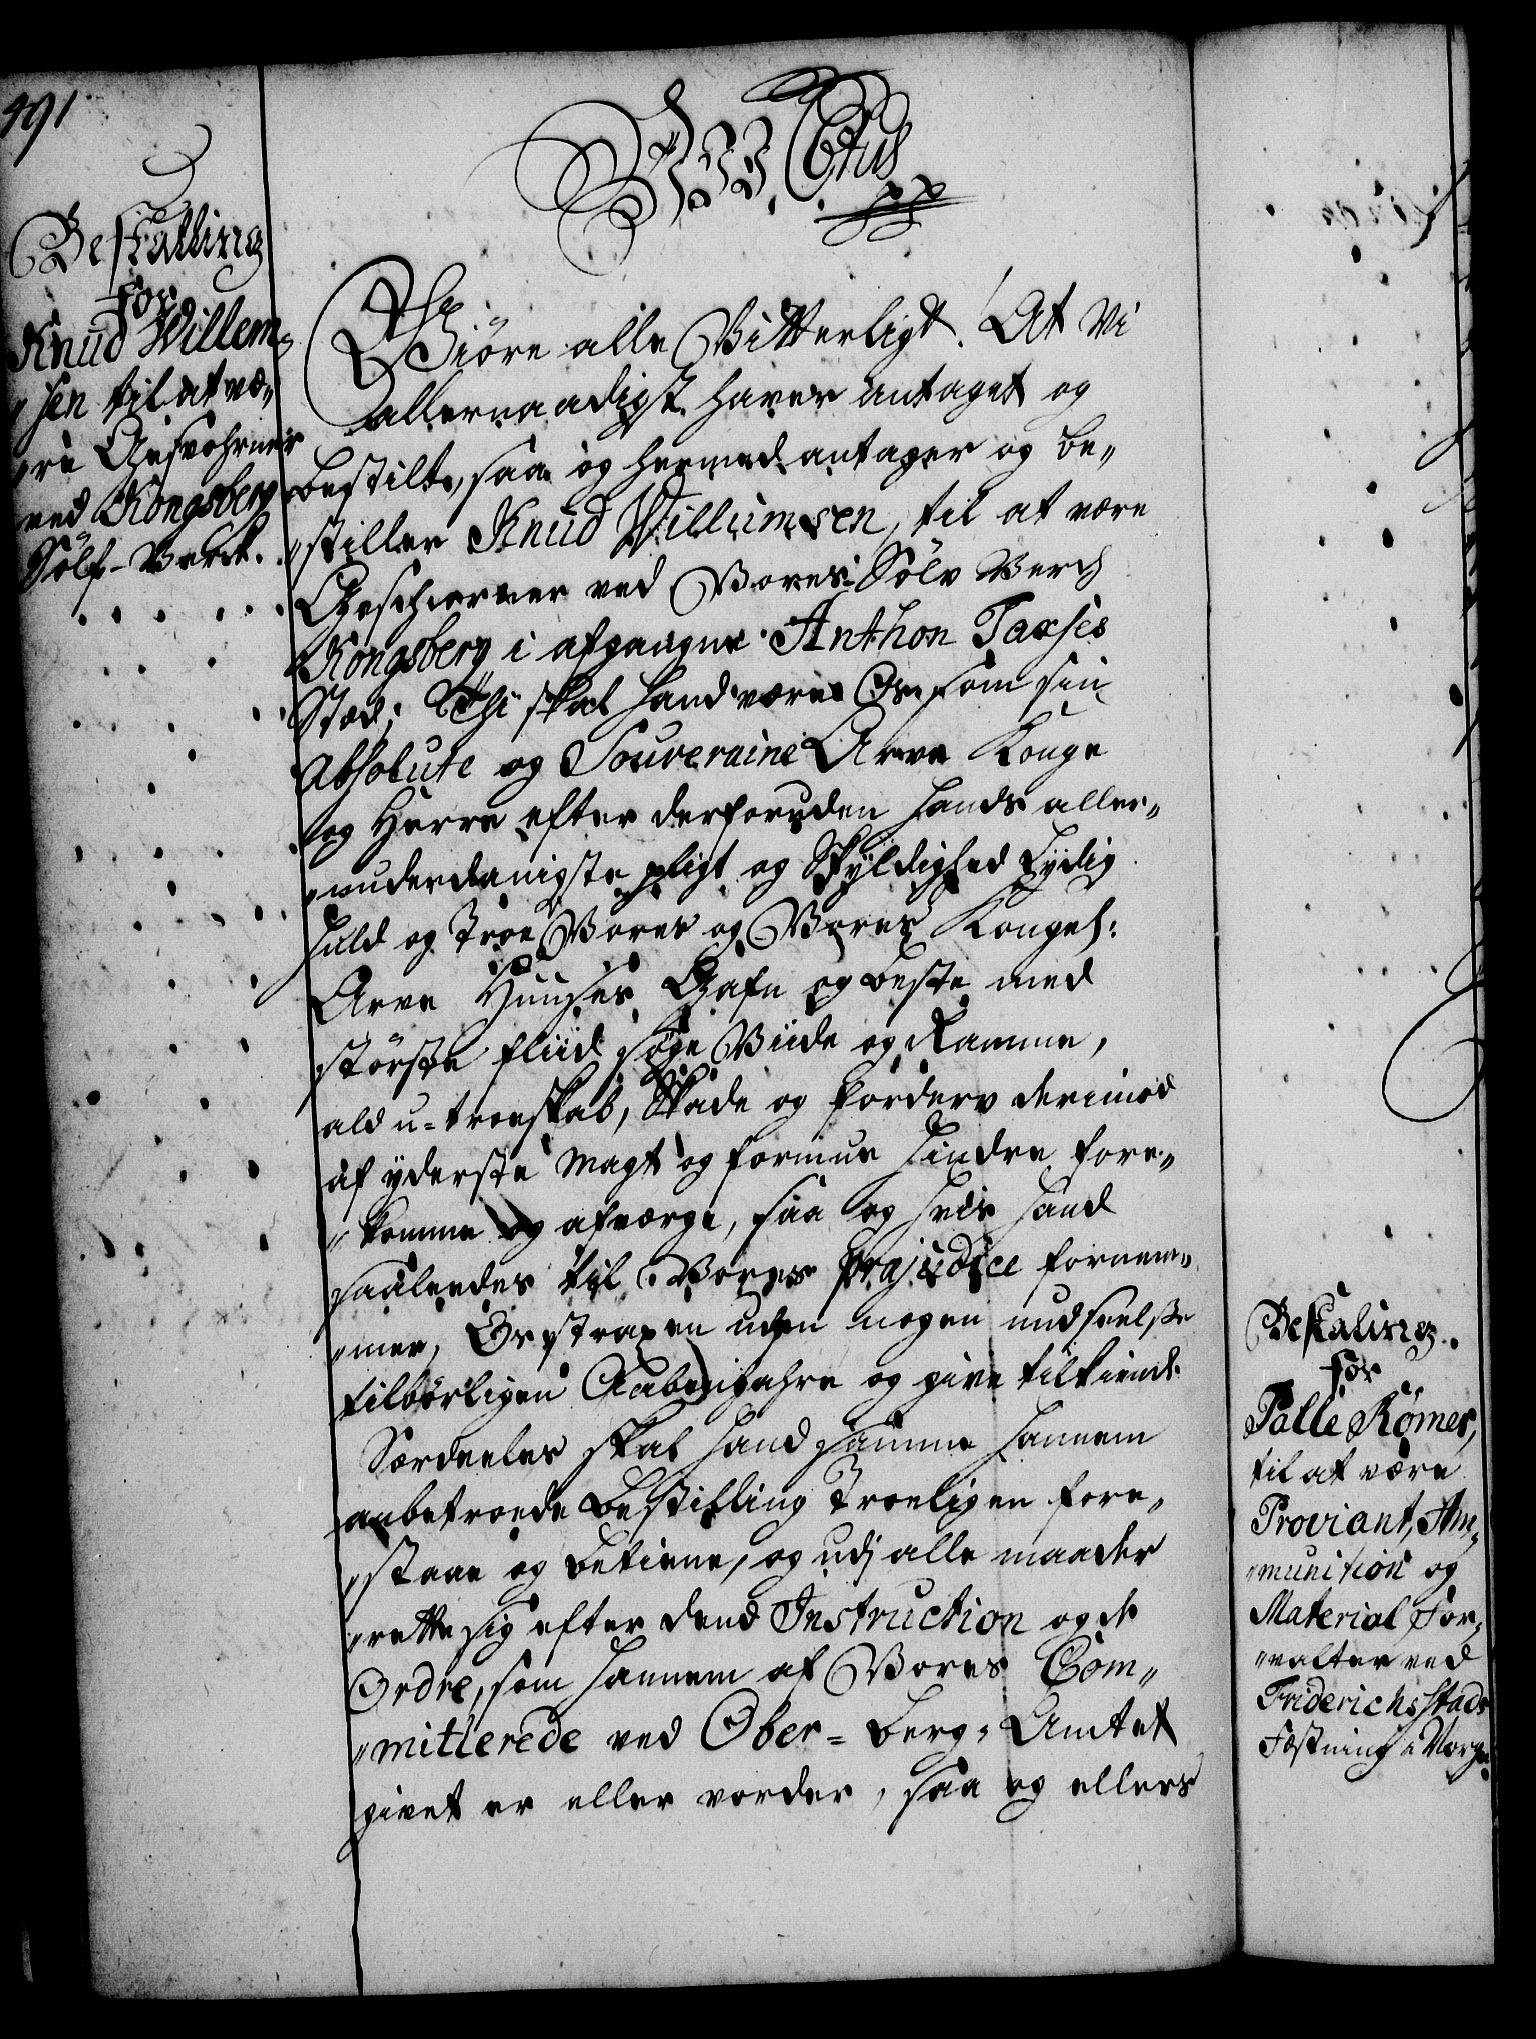 491
Bestalling
for
Knud Willem„
„sen til at væ„
„re Gesvohrner
ved Kongsberg
Sölf-Verck.
Ctus
pp
Giöre alle Vitterligt! At Vi
allernaadigst haver antaget og
bestilt, saa og hermed antager og be„
„stiller Knud Willumsen, til at være
Geschworner ved Vores Sölv Verch
Kongsberg i afgangne Anthon Taxses
Stæd; Thi skal hand være Os som sin
Absolute og Souveraine Arve Konge
og Herre efter derforuden hands aller„
„underdanigste pligt og Skyldighed Lydig
huld og Troe Vores og Vores Kongel:
Arve Huuses Gafn og beste med
störste fliid söge Viide og Ramme,
ald u-troeskab, Skade og forderv derimod
af yderste Magt og formue hindre fore„
„komme og afværge, saa og hvis hand
saaledes til Vores præjudice fornem„
„mer, Os straxen uden nogen undseelse
tilbörligen Aabenbahre og give tilkiende
Særdeeles skal hand samme hannem
anbetroede Bestilling Troeligen fore„
„staae og betiene, og udj alle maader
rette sig efter dend Instruction og de
Ordre, som hannem af Vores Com„
„mitterede ved Ober-Berg-Amtet
givet er eller vorder, saa og ellers
Bestaling
for
Palle Römer,
til at være
Proviant, Am„
„munition og
Material For„
„valter ved
Friderichsstads
Fæstning i Norge